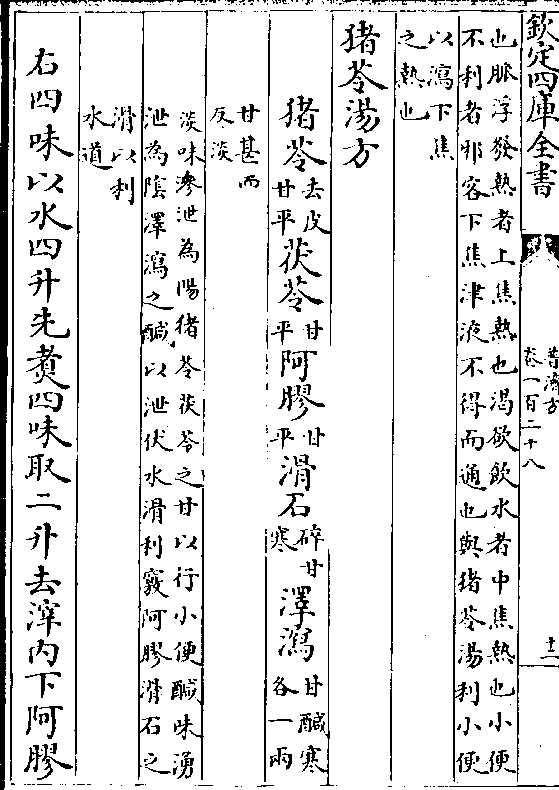 欽定四庫全書
普濟方
卷一百二十八
十二
也脈浮發熱者上焦熱也渴欲飲水者中焦熱也小便
不利者邪客下焦津液不得而通也與猪苓湯利小便
以瀉下焦
之熱也
猪苓湯方
猪苓去皮甘平茯苓甘平阿膠甘平滑石碎甘寒澤瀉甘鹹寒各一兩
甘甚而
反淡
淡味滲泄為陽猪苓茯苓之甘以行小便鹹味湧
泄為陰澤瀉之鹹以泄伏水滑利竅阿膠滑石之
滑以利
水道
右四味以水四升先煑四味取二升去滓内下阿膠